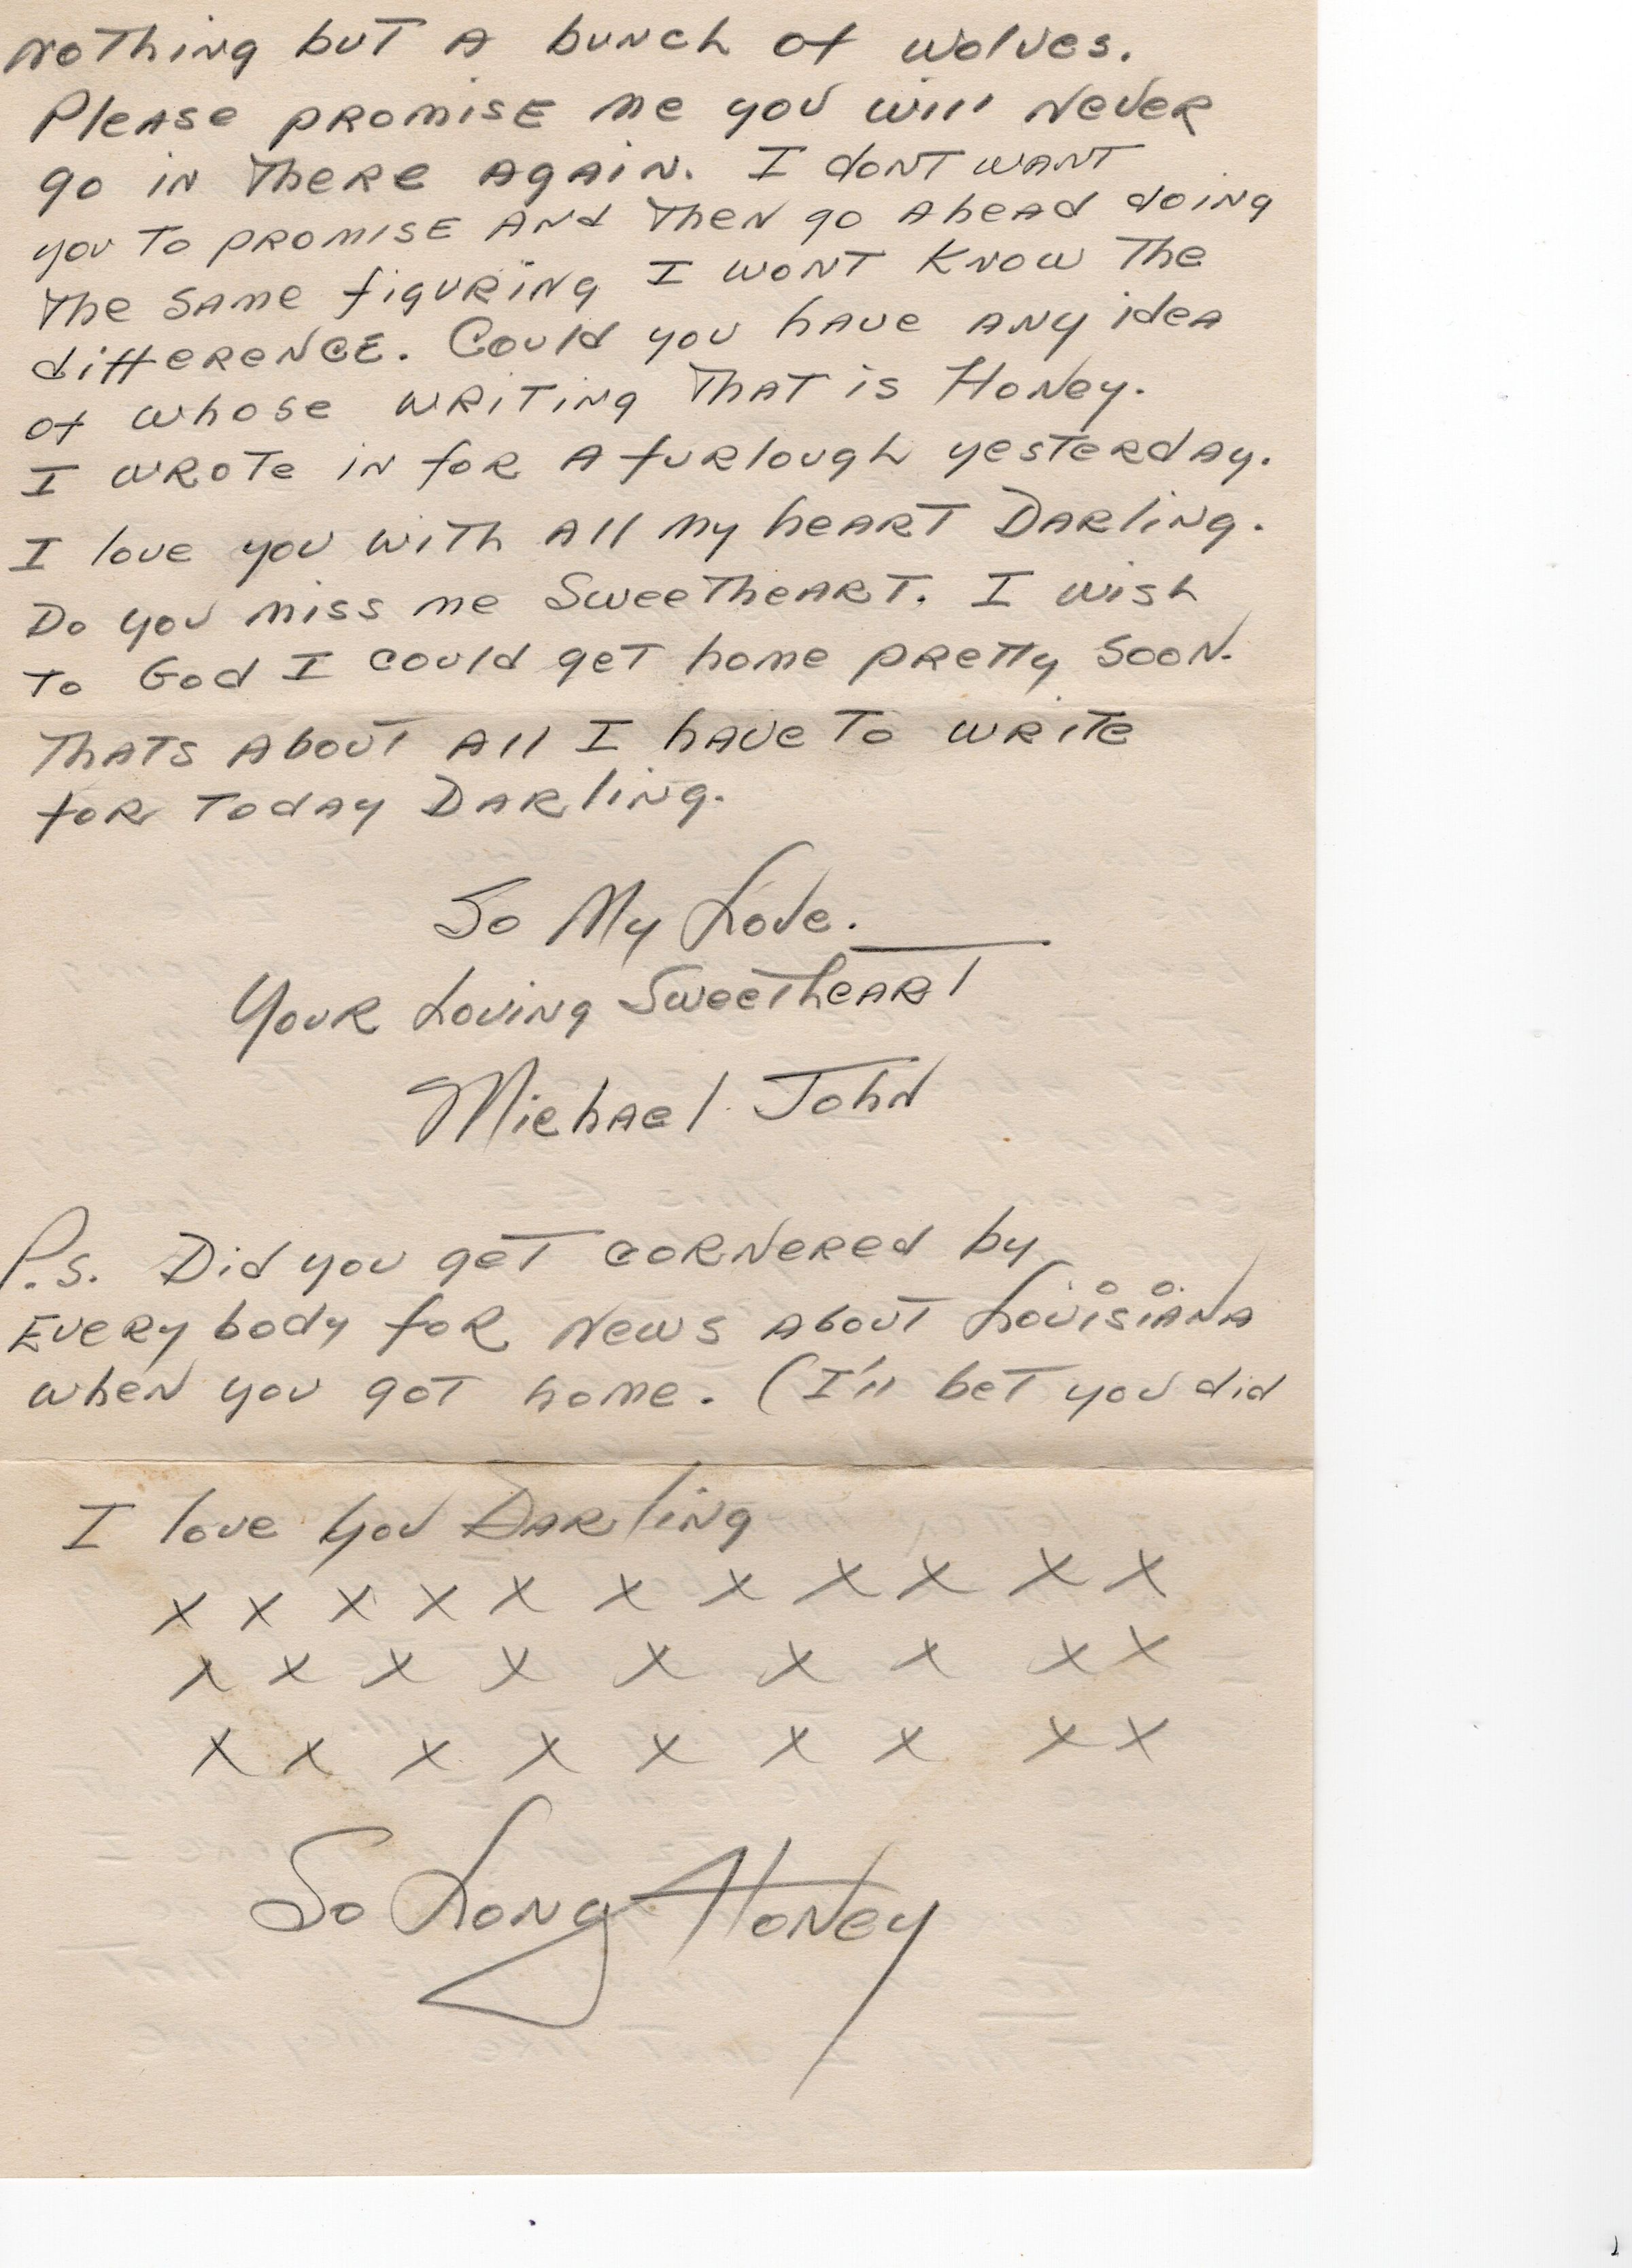 Nothing but a bunch of wolves.
Please promise me you will never
go in there again. I dont want
you to promise and then go ahead doing
the same figuring I wont know the
difference. Could you have any idea
of whose writing that is Honey.
I wrote in for a furlough yesterday.
I love you with all my heart Darling.
Do you miss me Sweetheart. I wish
to God I could get home pretty soon.
Thats about all I have to write
for today Darling.
So My Love.
Your Loving Sweetheart
Michael John
P.S. Did you get cornered by
every body for news about Louisiana
when you got home. (I'll bet you did
I love you Darling
x x x x x x x x x x x
x x x x x x x x x
x x x x x x x x x
So Long Honey